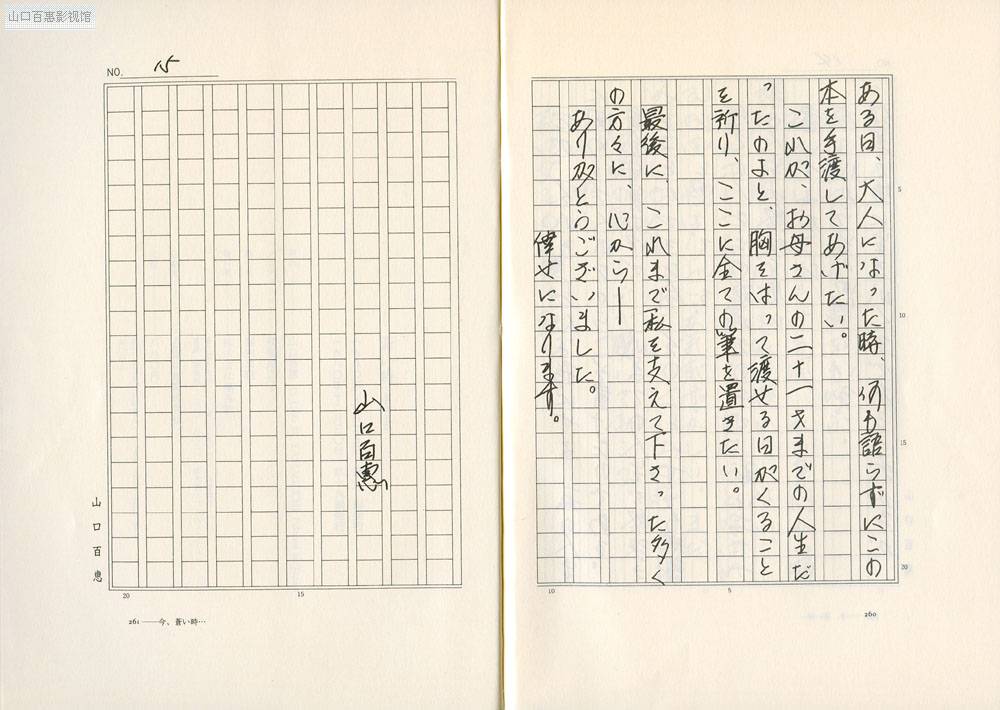 山口百惠影视馆
ある日、大人になった時、何も語らずにこの
本を手渡してあげたい。
これが、お母さんの二十一才までの人生だ
ったのよと、胸をはって渡せる日がくること
を祈り、ここに全ての筆を置きたい。
最後に、これまで私を支えて下さった多く
の方々に、心から——
ありがとうございました。
倖せになります。
5
10
15
20
10
5
260
NO. 15
山口百惠
山口百恵
20
15
261——今、蒼い時…